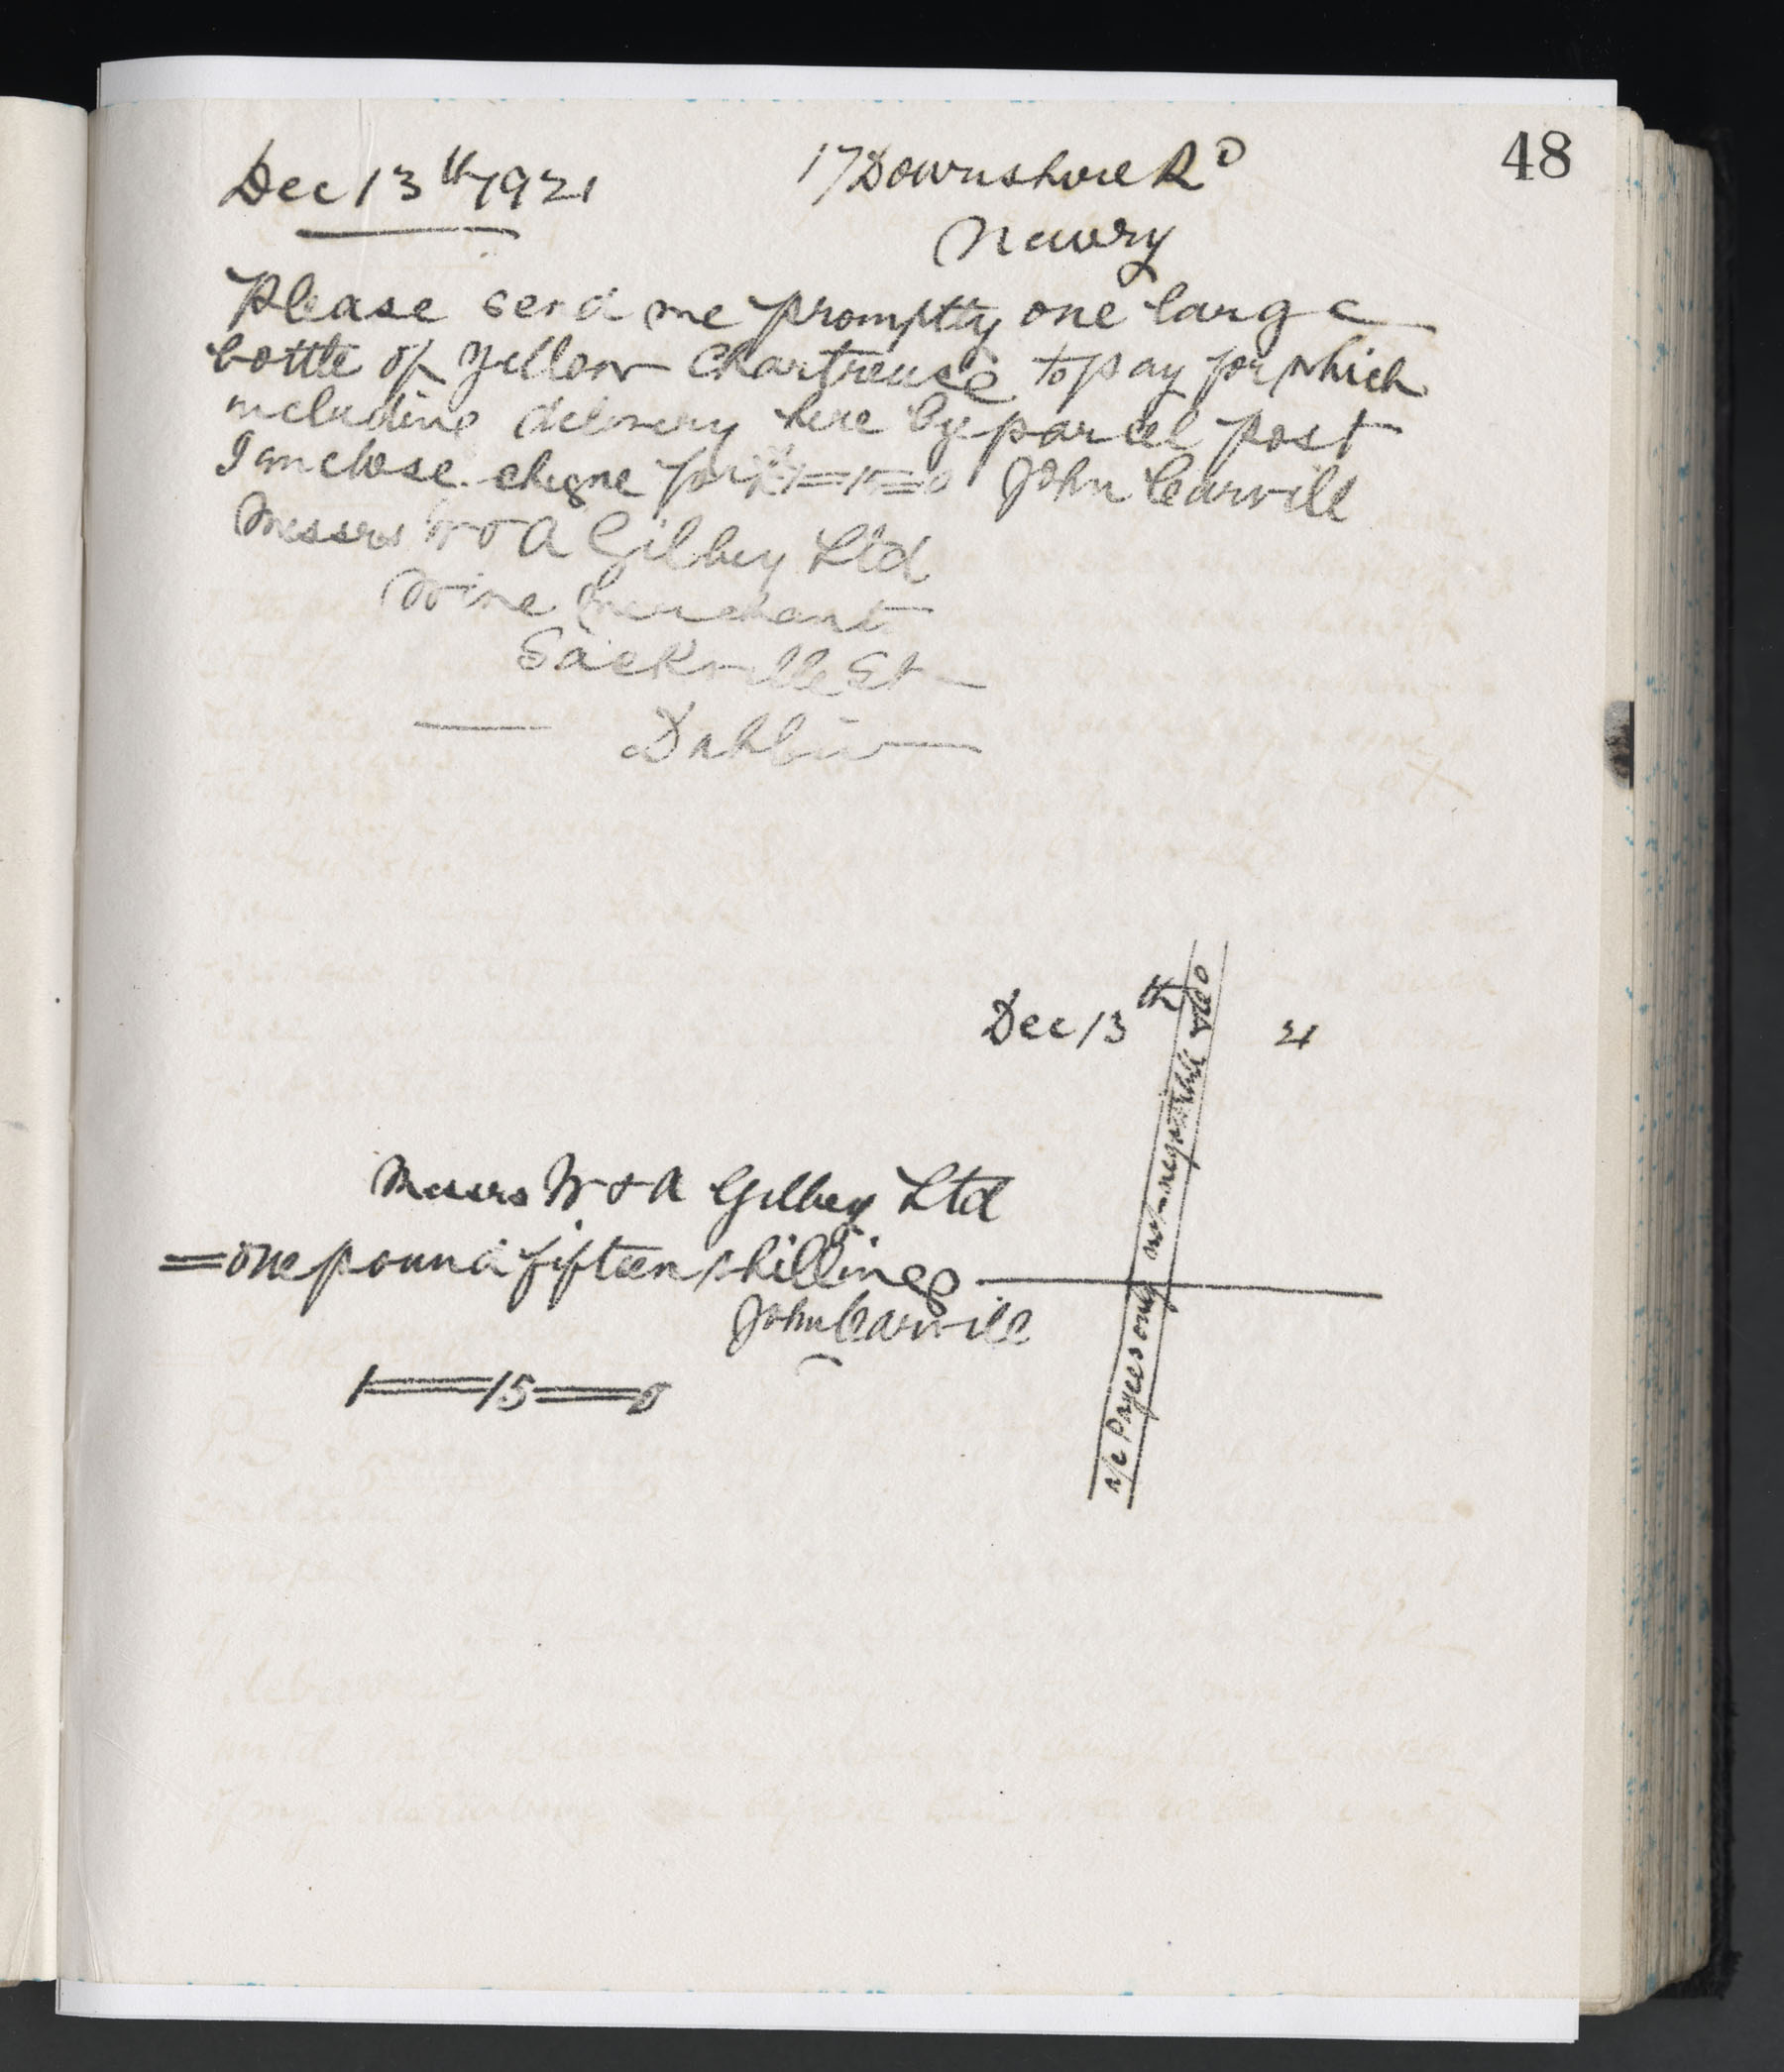 48
Dec 13th 1921 17 Downshire Rd
Newry
Please send me promptly one large
bottle of Yellow Chartreuse to pay for which
including delivery here by parcel post
I enclose cheque for £1=15=0 John Carvill
Messrs W & A Gilbey Ltd
Wine Merchant
Sackville St
Dublin
Dec 13th 21
Messrs W & A Gilbey Ltd
=one pound fifteen shillings
John Carvill
1=15=0
a/c Payees only not negotiable